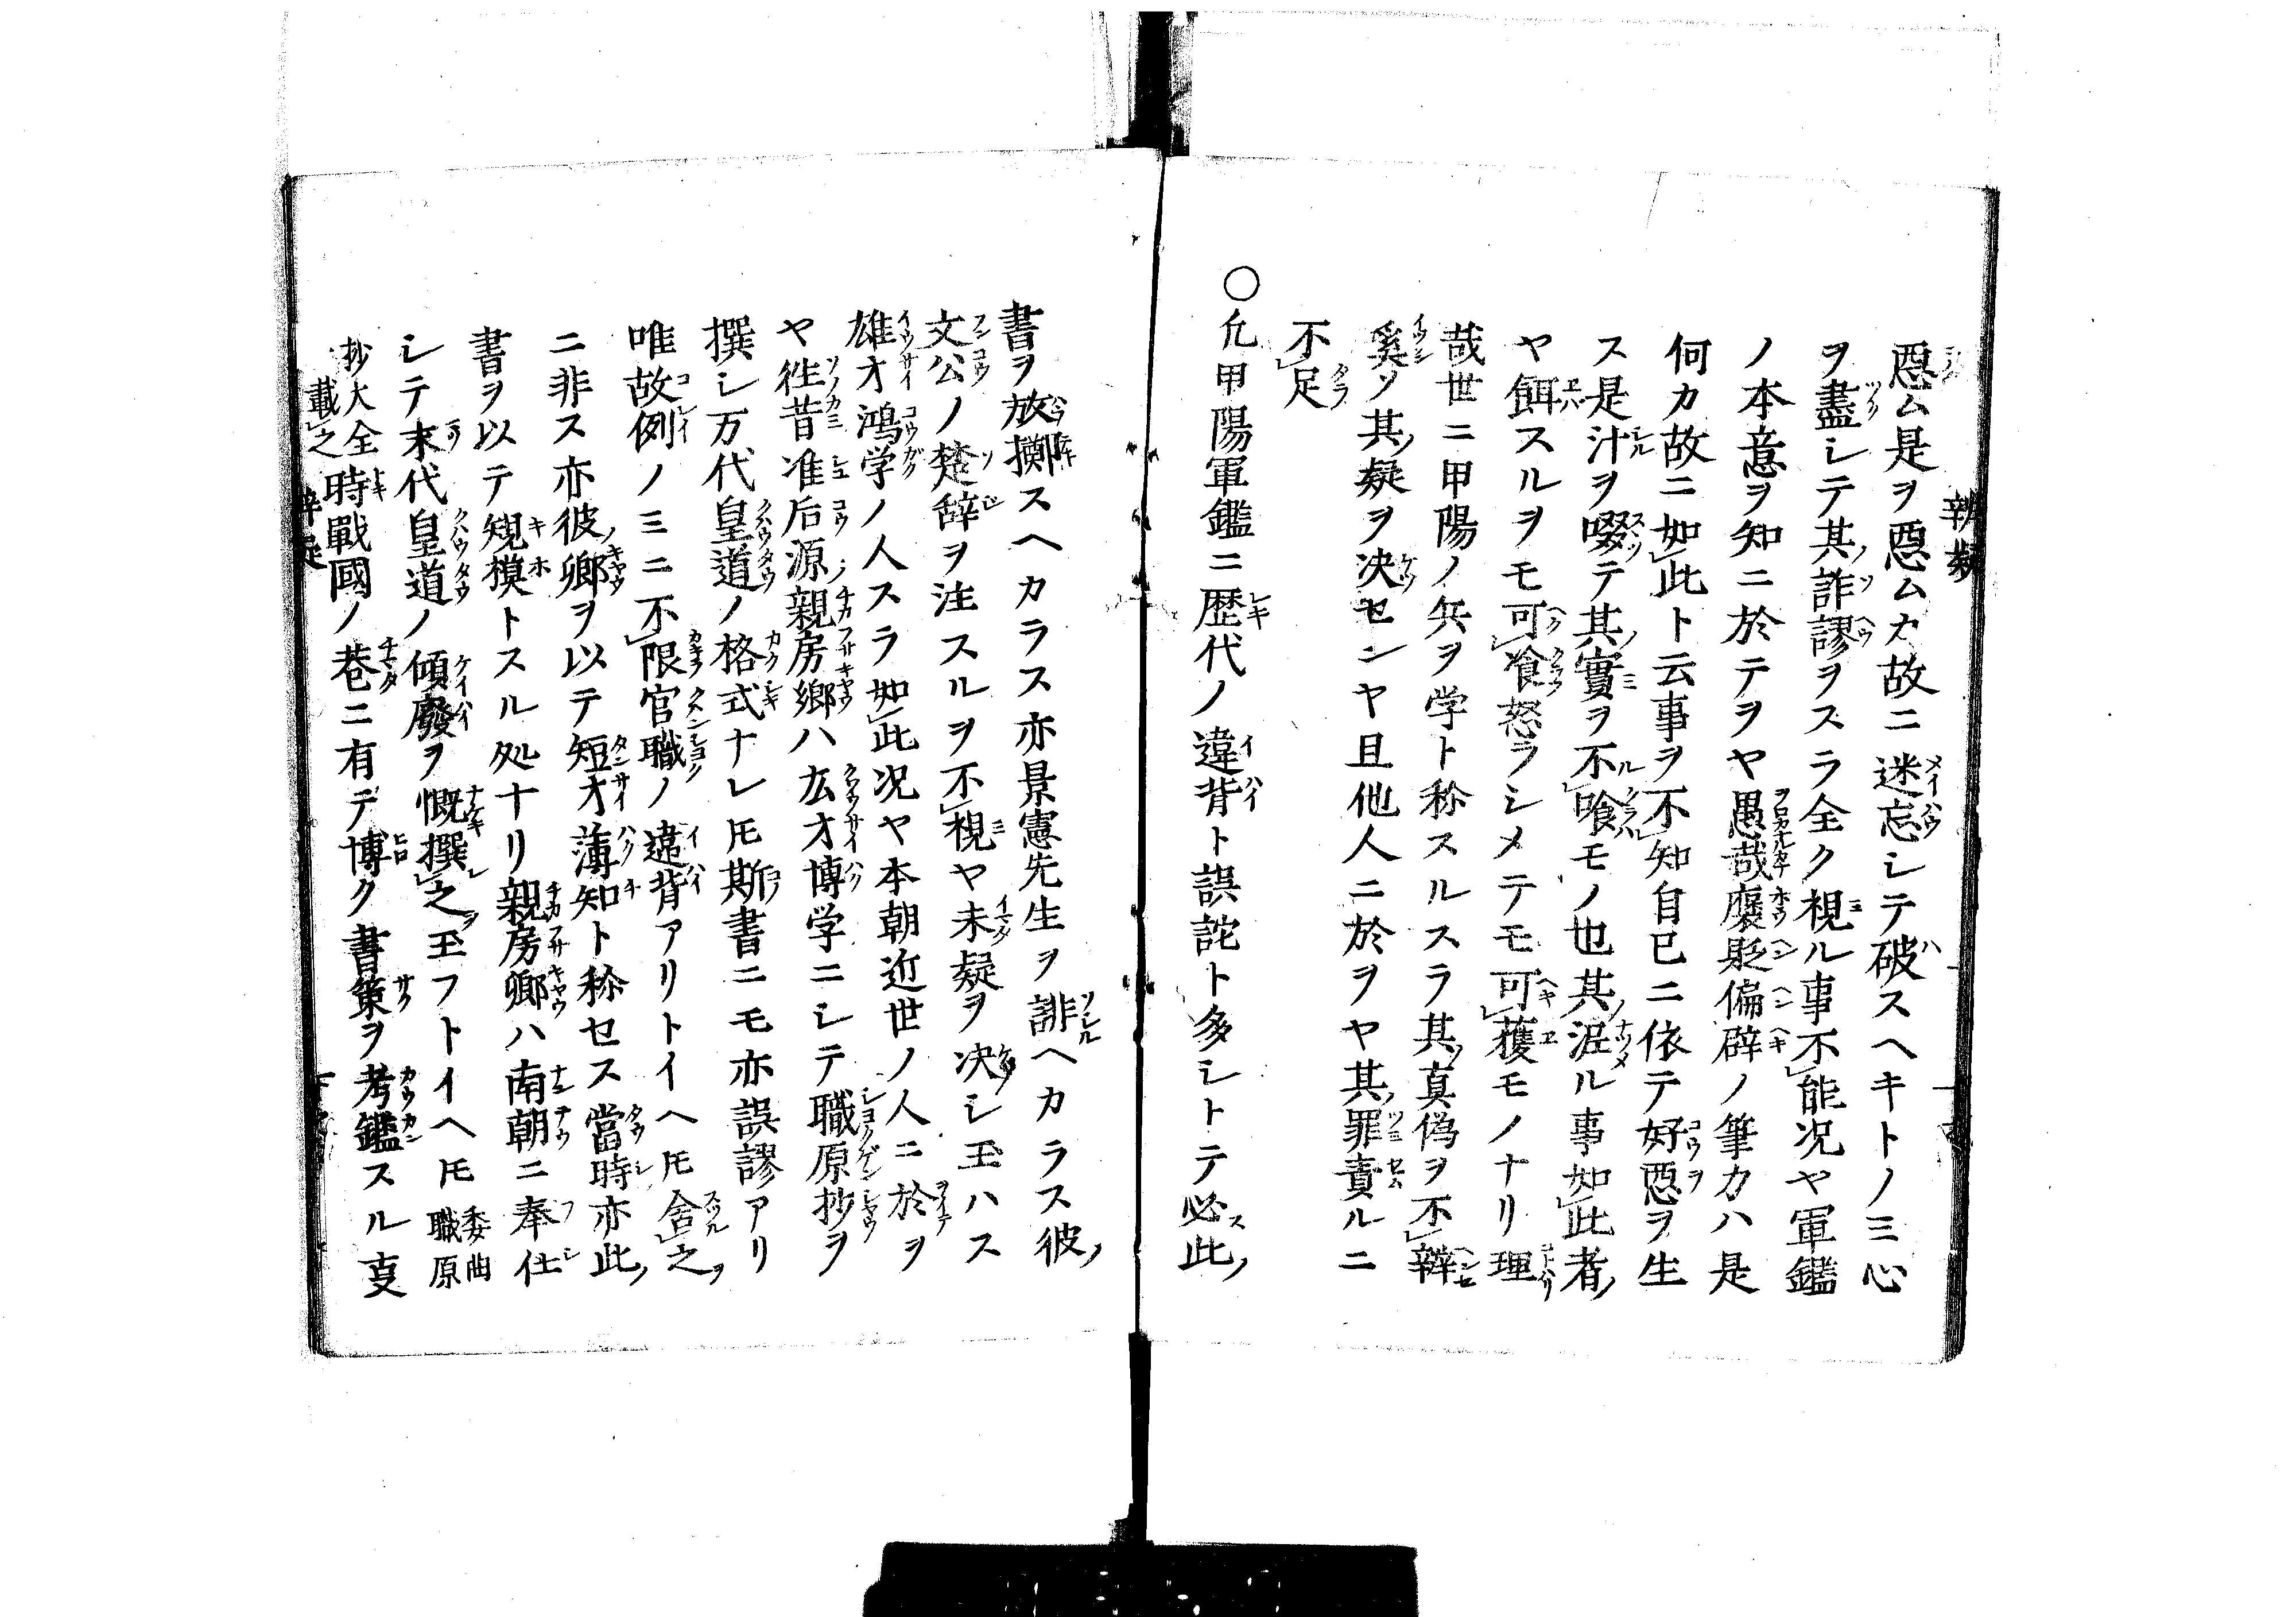 惡ム是ヲ惡ムカ故ニ迷忘シテ破スヘキトノミ心
ヲ盡シテ其詐謬ヲスラ全ク視ル事不能况ヤ軍鑑
ノ本意ヲ知ニ於テヲヤ愚哉襃貶偏辟ノ筆カハ是
何カ故ニ如此ト云事ヲ不知自已ニ依テ好惡ヲ生
ス是汁ヲ啜テ其實ヲ不喰モノ也其泥ル事如此者
ヤ餌スルヲモ可飡怒ラシメテモ可獲モノナリ理
哉世ニ甲陽ノ兵ヲ学ト称スルスラ其真偽ヲ不辨
奚ソ其疑ヲ决センヤ且他人ニ於ヲヤ其罪責ルニ
不足
○凢甲陽軍鑑ニ歴代ノ違背ト誤詑ト多シトテ必此
書ヲ放擲スヘカラス亦景憲先生ヲ誹ヘカラス彼
文公ノ楚辞ヲ注スルヲ不視ヤ未疑ヲ决シ玉ハス
雄才鴻学ノ人スラ如此况ヤ本朝近世ノ人ニ於ヲ
ヤ徃昔准后源親房郷ハ広才博学ニシテ職原抄ヲ
撰シ万代皇道ノ格式ナレ𪜈斯書ニモ亦誤謬アリ
唯故例ノミニ不限官職ノ違背アリトイヘ𪜈舎之
ニ非ス亦彼卿ヲ以テ短才薄知ト称セス當時亦此
書ヲ以テ䂓模トスル处ナリ親房卿ハ南朝ニ奉仕
シテ末代皇道ノ傾廢ヲ慨撰之玉フトイヘ𪜈委曲職原
抄大全載之時戰國ノ巷ニ有テ博ク書策ヲ考鑑スル㕝